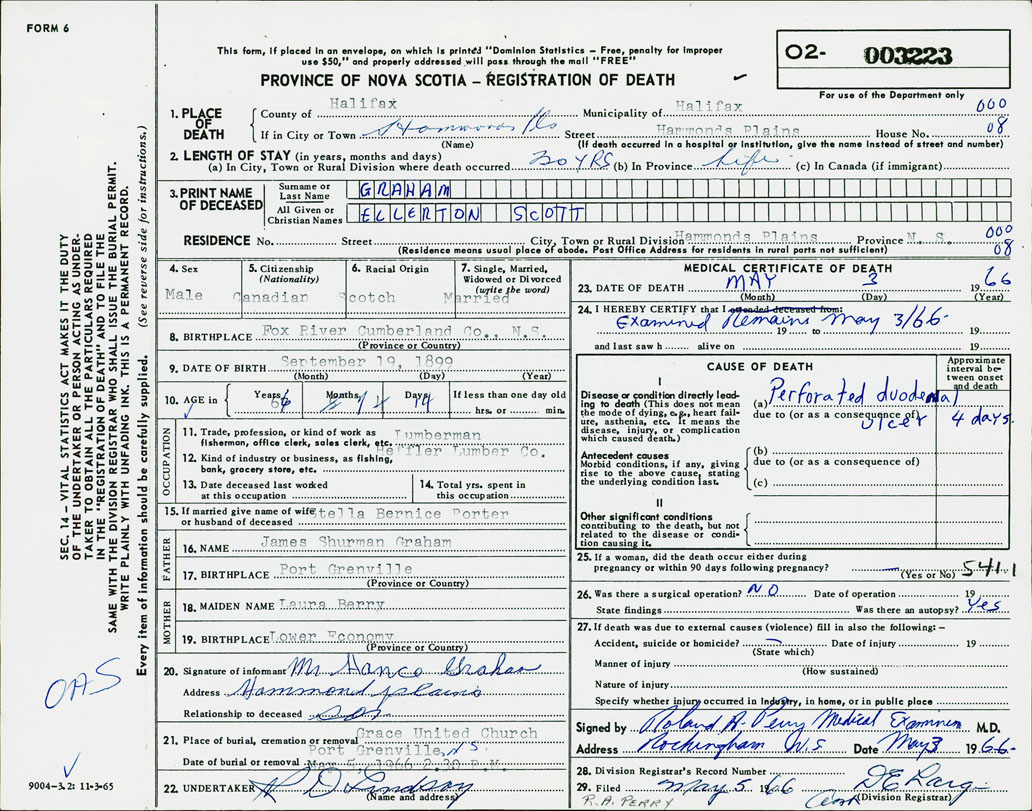 FORM 6
This form, if placed in an envelope, on which is printed "Dominion Statistics – Free, penalty for improper
use $50," and properly addressed will pass through the mail "FREE"
PROVINCE OF NOVA SCOTIA – REGISTRATION OF DEATH
O2- 003223
For use of the Department only
1. PLACE OF DEATH
County of Halifax Municipality of Halifax 000
If in City or Town Hammonds Pls Street Hammonds Plains House No. 08
(Name) (If death occurred in a hospital or institution, give the name instead of street and number)
2. LENGTH OF STAY (in years, months and days)
(a) In City, Town or Rural Division where death occurred 30 YRS (b) In Province Life (c) In Canada (if immigrant)
3. PRINT NAME OF DECEASED
Surname or Last Name GRAHAM
All Given or Christian Names ELLERTON SCOTT
RESIDENCE No. Street City, Town or Rural Division Hammonds Plains Province N. S. 000
(Residence means usual place of abode. Post Office Address for residents in rural parts not sufficient) 08
4. Sex
Male
5. Citizenship
(Nationality)
Canadian
6. Racial Origin
Scotch
7. Single, Married, Widowed or Divorced
(write the word)
Married
8. BIRTHPLACE Fox River Cumberland Co., N.S.
(Province or Country)
9. DATE OF BIRTH September 19, 1899
(Month) (Day) (Year)
10. AGE in Years 66 Months 7 Days 14 If less than one day old
hrs. or min.
OCCUPATION
11. Trade, profession, or kind of work as Lumberman
fisherman, office clerk, sales clerk, etc.
12. Kind of industry or business, as fishing, Hefler Lumber Co.
bank, grocery store, etc.
13. Date deceased last worked
at this occupation
14. Total yrs. spent in
this occupation
15. If married give name of wife Stella Bernice Porter
or husband of deceased
FATHER
16. NAME James Shurman Graham
17. BIRTHPLACE Port Grenville
(Province or Country)
MOTHER
18. MAIDEN NAME Laura Berry
19. BIRTHPLACE Lower Economy
(Province or Country)
20. Signature of informant Mr Graham
Address Hammond plains
Relationship to deceased son
21. Place of burial, cremation or removal Grace United Church
Port Grenville, N S
Date of burial or removal May 5, 1966 2:30 P.M.
22. UNDERTAKER Lindsay
(Name and address)
MEDICAL CERTIFICATE OF DEATH
23. DATE OF DEATH MAY 3 1966
(Month) (Day) (Year)
24. I HEREBY CERTIFY that I attended deceased from:
Examined Remains May 3/66
19 to 19
and last saw h alive on 19
CAUSE OF DEATH
Approximate interval between onset and death
I
Disease or condition directly leading to death (This does not mean the mode of dying, e.g., heart failure, asthenia, etc. It means the disease, injury, or complication which caused death.)
(a) Perforated duodenal
due to (or as a consequence of) ulcer 4 days
Antecedent causes
Morbid conditions, if any, giving rise to the above cause, stating the underlying condition last.
(b)
due to (or as a consequence of)
(c)
II
Other significant conditions
contributing to the death, but not related to the disease or condition causing it.
25. If a woman, did the death occur either during
pregnancy or within 90 days following pregnancy?
(Yes or No) 541.1
26. Was there a surgical operation? NO Date of operation 19
State findings Was there an autopsy? Yes
27. If death was due to external causes (violence) fill in also the following: –
Accident, suicide or homicide? Date of injury 19
(State which)
Manner of injury
(How sustained)
Nature of injury
Specify whether injury occurred in Industry, in home, or in public place
Signed by Roland A. Perry Medical Examiner M.D.
Address Rockingham N.S Date May 3 1966
28. Division Registrar's Record Number
29. Filed May 5 1966
(Division Registrar)
R.A. PERRY
SEC. 14 – VITAL STATISTICS ACT MAKES IT THE DUTY
OF THE UNDERTAKER OR PERSON ACTING AS UNDER-
TAKER TO OBTAIN ALL THE PARTICULARS REQUIRED
IN THE "REGISTRATION OF DEATH" AND TO FILE THE
SAME WITH THE DIVISION REGISTRAR WHO SHALL ISSUE THE BURIAL PERMIT.
WRITE PLAINLY WITH UNFADING INK. THIS IS A PERMANENT RECORD.
Every item of information should be carefully supplied. (See reverse side for instructions.)
OAS
9004-3.2: 11-3-65